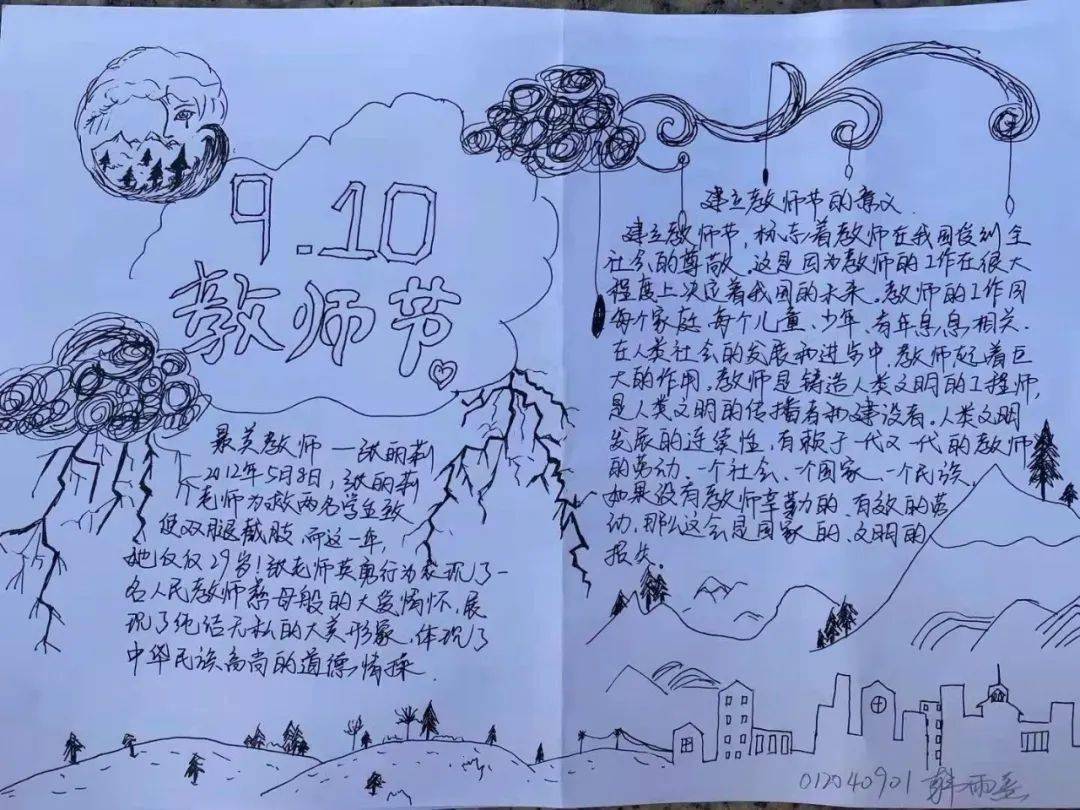 9.10
教师节
最美教师 — 张丽莉
2012年5月8日,张丽莉
老师为救两名学生致
使双腿截肢,而这一年,
她仅仅29岁!张老师英勇行为表现了一
名人民教师慈母般的大爱情怀,展
现了纯洁无私的大美形象,体现了
中华民族高尚的道德情操.
建立教师节的意议
建立教师节,标志着教师在我国受到全
社会的尊敬。这是因为教师的工作在很大
程度上决定着我国的未来。教师的工作同
每个家庭、每个儿童、少年、青年息息相关.
在人类社会的发展和进步中,教师起着巨
大的作用。教师是铸造人类文明的工程师,
是人类文明的传播者和建设者。人类文明
发展的连续性,有赖于一代又一代的教师
的劳动。一个社会、一个国家、一个民族,
如果没有教师辛勤的、有效的劳
动,那么这会是国家的、文明的
损失。
012040901 韩雨